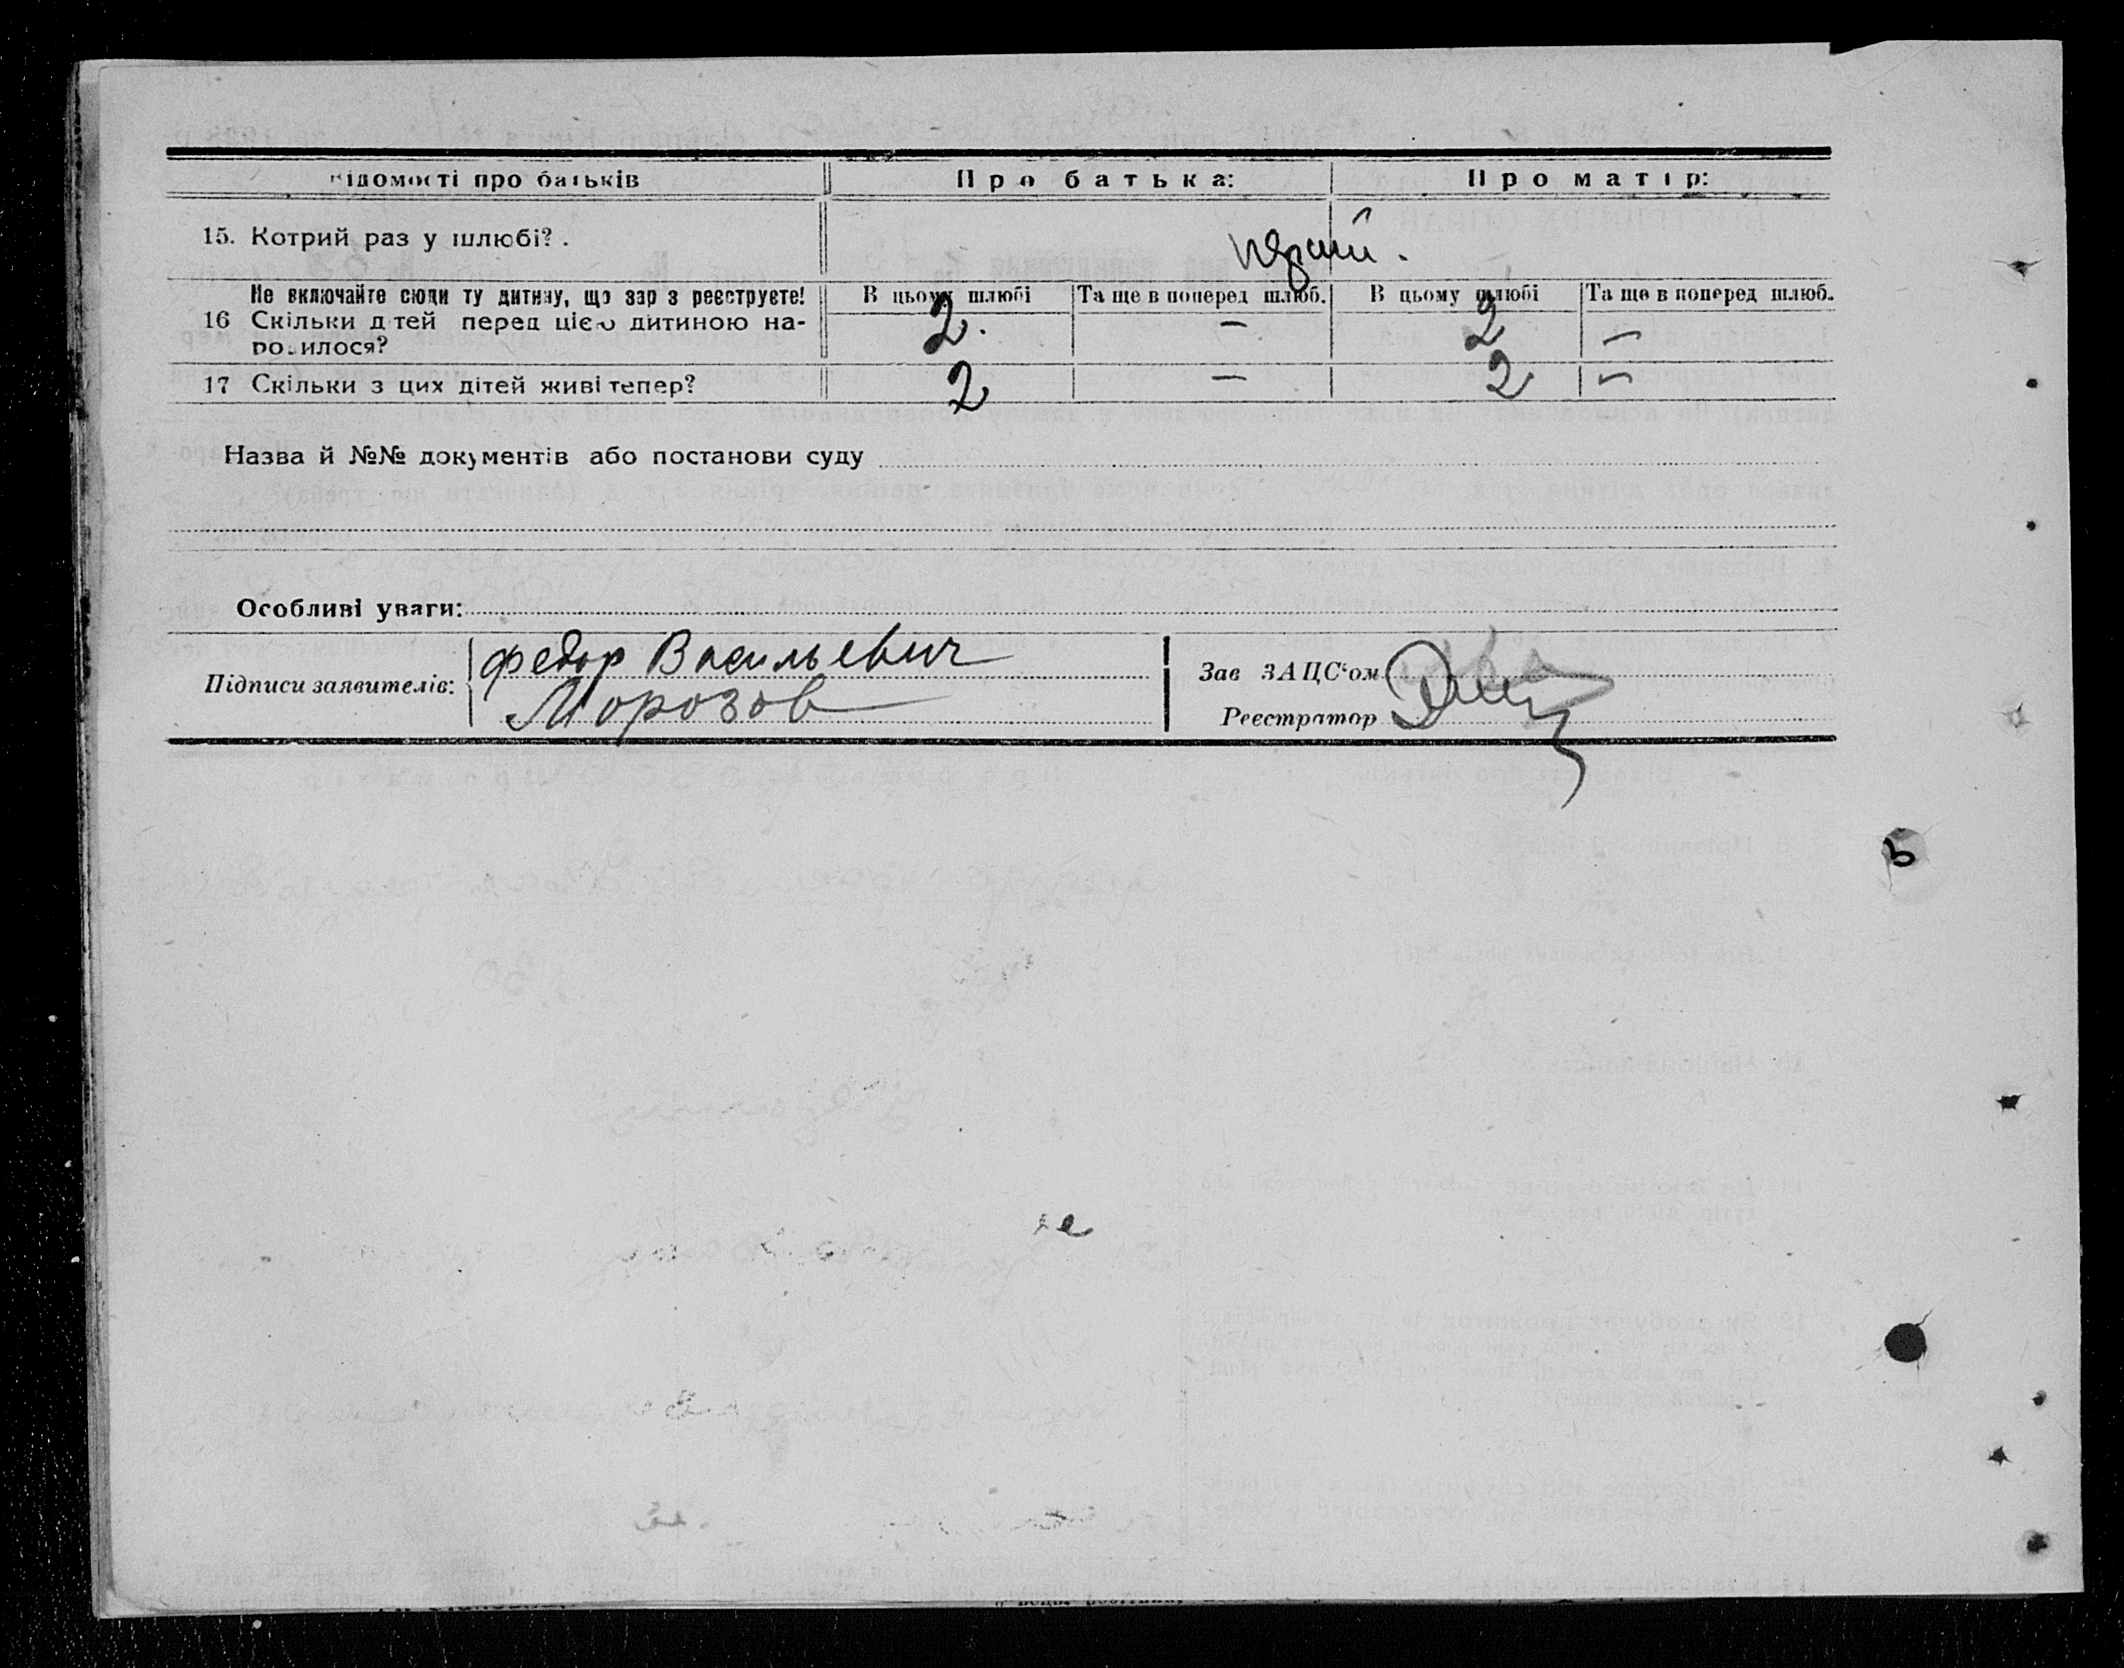 Відомості про батьків Про батька: Про матір:
15. Котрий раз у шлюбі? . перший.
Не включайте сюди ту дитину, що зараз реєструєте! В цьому шлюбі Та ще в поперед шлюб. В цьому шлюбі Та ще в поперед шлюб.
16 Скільки дітей перед цією дитиною на- 2. — 2 —
родилося?
17 Скільки з цих дітей живі тепер? 2 — 2 —
Назва й №№ документів або постанови суду
Особливі уваги:
Підписи заявителів: Федор Васильевич
Морозов
Зав ЗАЦС'ом
Реєстратор